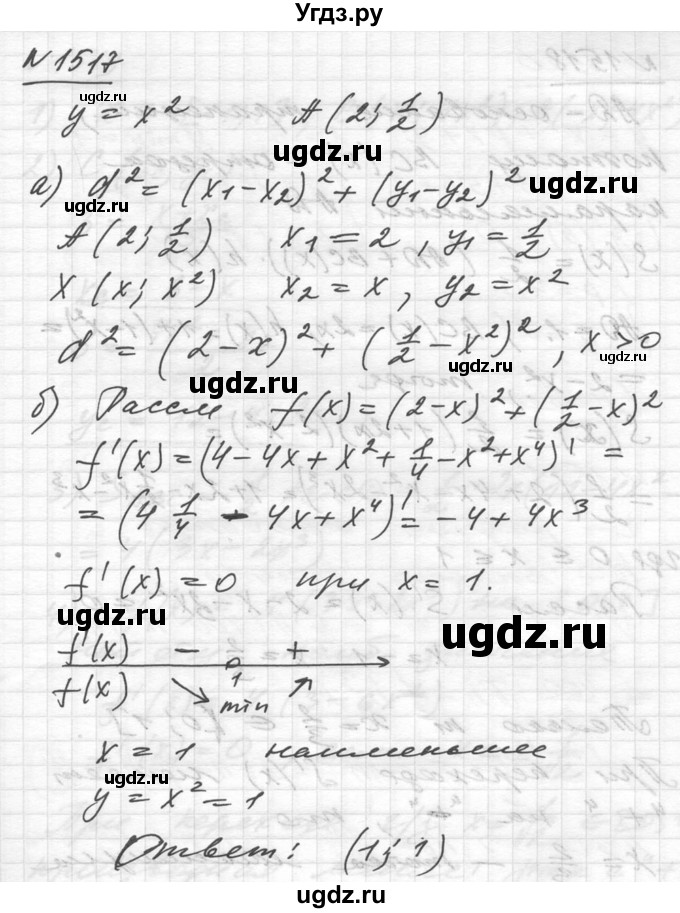 Угдз.ру
N 1517
ugdz.ru
y = x² A (2; 1/2)
ugdz.ru
а) d² = (x₁-x₂)² + (y₁-y₂)²
ugdz.ru
ugdz.ru
A (2; 1/2) x₁ = 2, y₁ = 1/2
X (x; x²) x₂ = x, y₂ = x²
d² = (2-x)² + (1/2 - x²)², x > 0
ugdz.ru
ugdz.ru
б) Рассм f(x) = (2-x)² + (1/2 - x)²
f'(x) = (4 - 4x + x² + 1/4 - x² + x⁴)' =
= (4 1/4 - 4x + x⁴)' = -4 + 4x³
f'(x) = 0 при x = 1.
ugdz.ru
ugdz.ru
f'(x) - +
1
f(x) min
ugdz.ru
x = 1 наименьшее
ugdz.ru
y = x² = 1
Ответ: (1; 1)
ugdz.ru
ugdz.ru